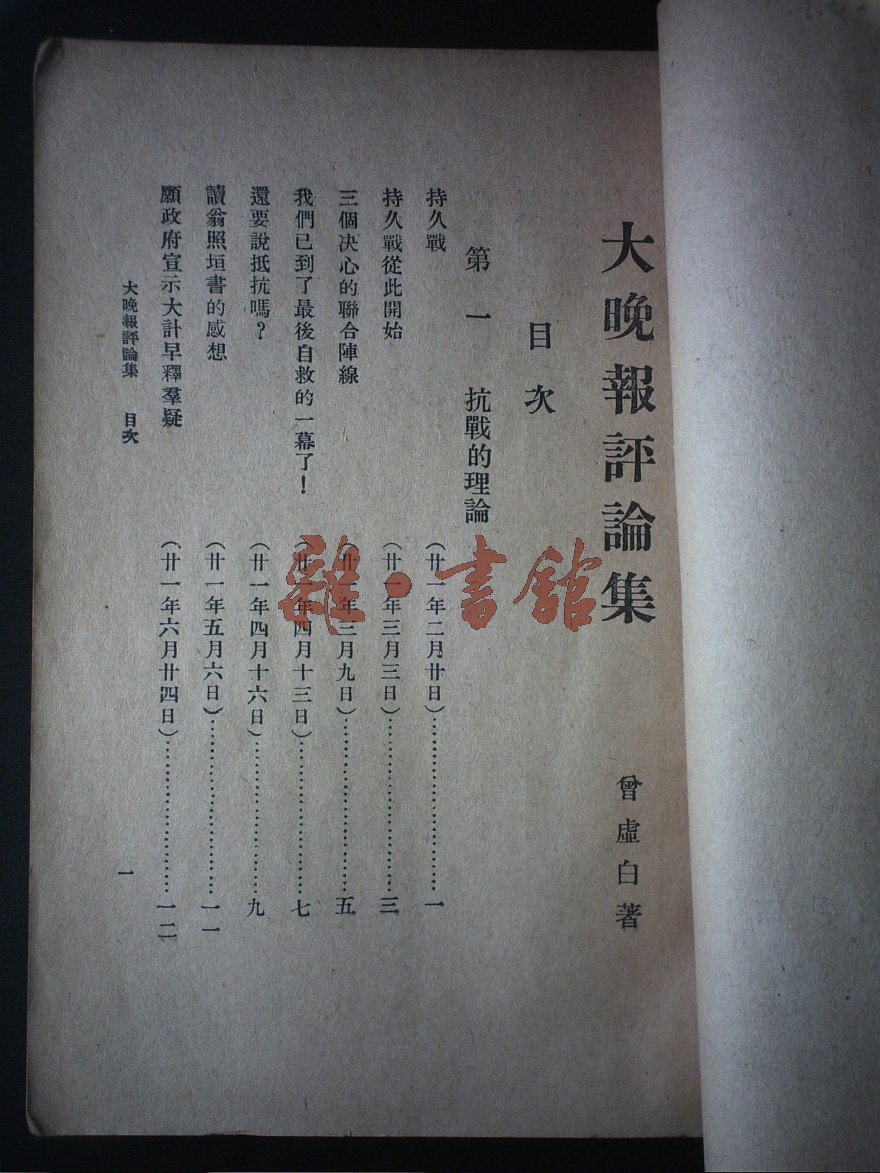 大晚報評論集
曾虛白著
目次
第一 抗戰的理論
持久戰 (廿一年二月廿日)……………………一
持久戰從此開始 (廿一年三月三日)……………………三
三個決心的聯合陣線 (廿一年三月九日)……………………五
我們已到了最後自救的一幕了！ (廿一年四月十三日)……………………七
還要說抵抗嗎？ (廿一年四月十六日)……………………九
讀翁照垣書的感想 (廿一年五月六日)……………………一一
願政府宣示大計早釋羣疑 (廿一年六月廿四日)……………………一二
大晚報評論集 目次
一
雜·書館